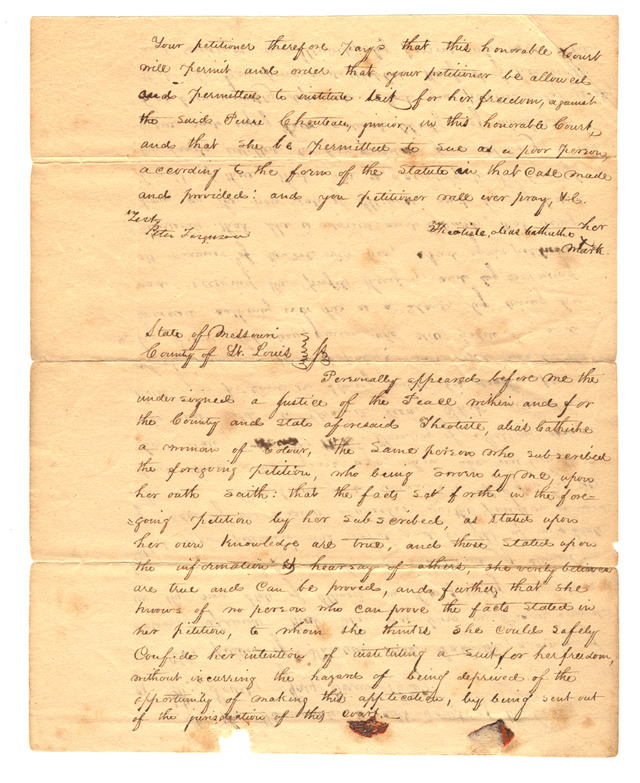 Your petitioner therefore pays that this honorable Court
will permit and order that your petitioner be allowed
and permitted to institute suit for her freedom, against
the said Pierre Chouteau, junior, in this honorable Court,
and that she be permitted to sue as a poor person,
according to the form of the statute in that case made
and provided: and you petitioner will ever pray, &c.
Test,
Peter Ferguson
Theotiste, alias Catiche her
X
mark.
State of Missouri
County of St. Louis
Personally appeared before me the
undersigned a Justice of the Peace within and for
the County and state aforesaid Theotiste, alias Catiche
a woman of Colour, the same person who subscribed
the foregoing petition, who being sworn by me, upon
her oath saith: that the facts set forth in the fore=
=going petition by her subscribed, as stated upon
her own knowledge are true, and those stated upon
the information & hearsay of others, she verily believes
are true and can be proved, and further, that she
knows of no person who can prove the facts stated in
her petition, to whom she thinks she could safely
Confide her intention of instituting a suit for her freedom,
without incurring the hazard of being deprived of the
opportunity of making this application, by being sent out
of the jurisdiction of this Court.